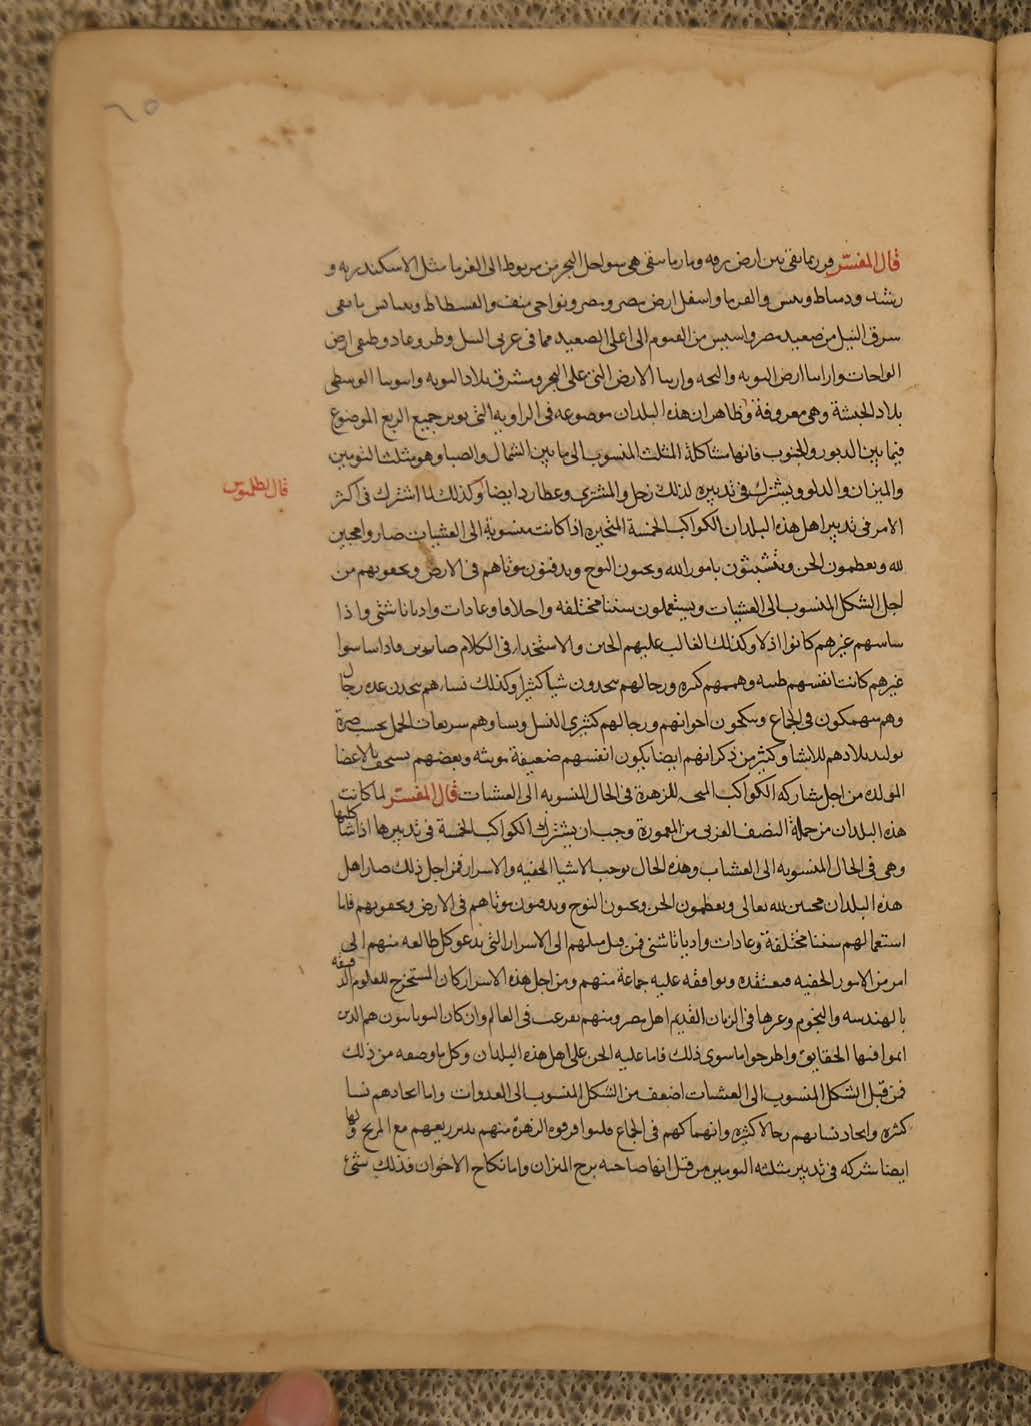 ٦٥
قال المفسر فررىماىقى بين ارض برقه ومارماىىقى هى سواحل البحر من مريوط الى الفرما مثل الاسكندريه و
رشيد ودمياط وىىىس والفرما واسفل ارض مصر ومصر ونواحى منف والفسطاط وىىىاىس ماىقى
شرق النيل من صعيد مصر واسيس من الفيوم الى اعلى الصعيد مما فى غربى النيل وطىر وعاد وطىعى ارض
الواحات واراىيا ارض النوبه والبجه وارىىا الارض التى على البحر وشرق بلاد النوبه واىىوىىا الوسطى
بلاد الحبشة وهى معروفة وظاهر ان هذه البلدان موضوعه فى الزاويه التى ىوىر جميع الربع الموضوع
فيما بين الدبور والجنوب فانها مشاكلة المثلث المنسوب الى ما بين الشمال والصبا وهو مثلث التومين
والميزان والدلو ويشترك فى تدبيره لذلك زحل والمشترى وعطارد ايضا وكذلك لما اشترك فى اكثر
قال بطلميوس
الامر فى تدبير اهل هذه البلدان الكواكب الخمسة المتحيره اذا كانت منسوبة الى العشيات صاروا محبين
لله ويعظمون الجن ويتشبثون بامور الله ويحبون النوح ويدفنون موتاهم فى الارض ويخفونهم من
اجل الشكل المنسوب الى العشيات ويستعملون سننا مختلفه واخلاقا وعادات واديانا شتى واذا
ساسهم غيرهم كانوا اذلا وكذلك الغالب عليهم الجبن والاستخذا فى الكلام صابرين فاذا ساسوا
غيرهم كانت انفسهم طيبه وهممهم كبيره ورجالهم يتخذون شيا كثيرا وكذلك نساءهم يتخذن عده رجال
وهم منهمكون فى الجماع وينكحون اخواتهم ورجالهم كثيرى النسل ونساوهم سريعات الحمل بحسب صىرة
توليد بلادهم للاشيا وكثير من ذكرانهم ايضا يكون انفسهم ضعيفة مونثه وبعضهم يستخف بالاعضا
المولده من اجل مشاركه الكواكب المتحيره للزهرة فى الحال المنسوبه الى العشيات قال المفسر لما كانت
هذه البلدان من جملة النصف الغربى من المعمورة وجب ان يشترك الكواكب الخمسة كلها فى تدبيرها اذا شا
وهى فى الحال المنسوبه الى العشيات وهذه الحال توجب الاشيا الخفيه والاسرار فمن اجل ذلك صار اهل
هذه البلدان محبين لله تعالى ويعظمون الجن ويحبون النوح ويدفنون موتاهم فى الارض ويخفونهم فاما
استعمالهم سننا مختلفة وعادات واديانا شتى فمن قبل ميلهم الى الاسرار التى يدعو كل طالعه منهم الى
امر من الامور الخفيه فيعتقده ويوافقه عليه جماعة منهم ومن اجل هذه الاسرار كان المستخرج للعلوم الدقيقه
بالهندسه والنجوم وغيرها فى الزمان القديم اهل مصر ومنهم تفرعت فى العالم وان كان اليونانيون هم الذين
اتموا فيها الحقايق واطرحوا ما سوى ذلك فاما غلبه الجن على اهل هذه البلدان وكل ما وصفه من ذلك
فمن قبل الشكل المنسوب الى العشيات اضعف من الشكل المنسوب الى الغدوات واما اتخاذهم نسا
كثيره واتخاذ نسائهم رجالا كثيره وانهماكهم فى الجماع فلتوافر قوه الزهرة منهم بتدبير ربعهم مع المريخ ولها
ايضا شركه فى تدبير مثلثه التومين من قبل انها صاحبه برج الميزان واما نكاح الاخوات فذلك شئ